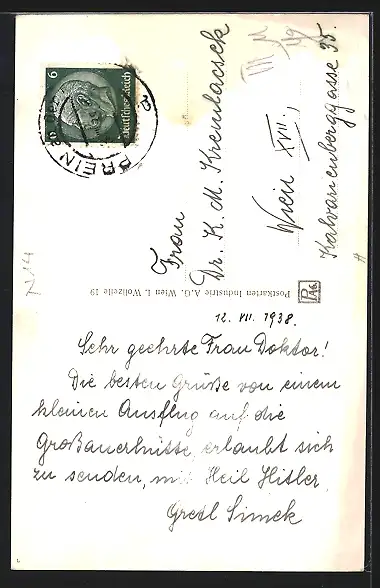 6
Deutsches Reich
FREIN
III M
49
Frau
Dr. K. M. Kremlacsek
Wien XVII.,
Kalvarienberggasse 35.
N14
Postkarten Industrie A.G. Wien I, Wollzeile 19
PIAG
12. VII. 1938.
Sehr geehrte Frau Doktor!
Die besten Grüße von einem
kleinen Ausflug auf die
Großauerhütte, erlaubt sich
zu senden, mit Heil Hitler
Gretl Simek